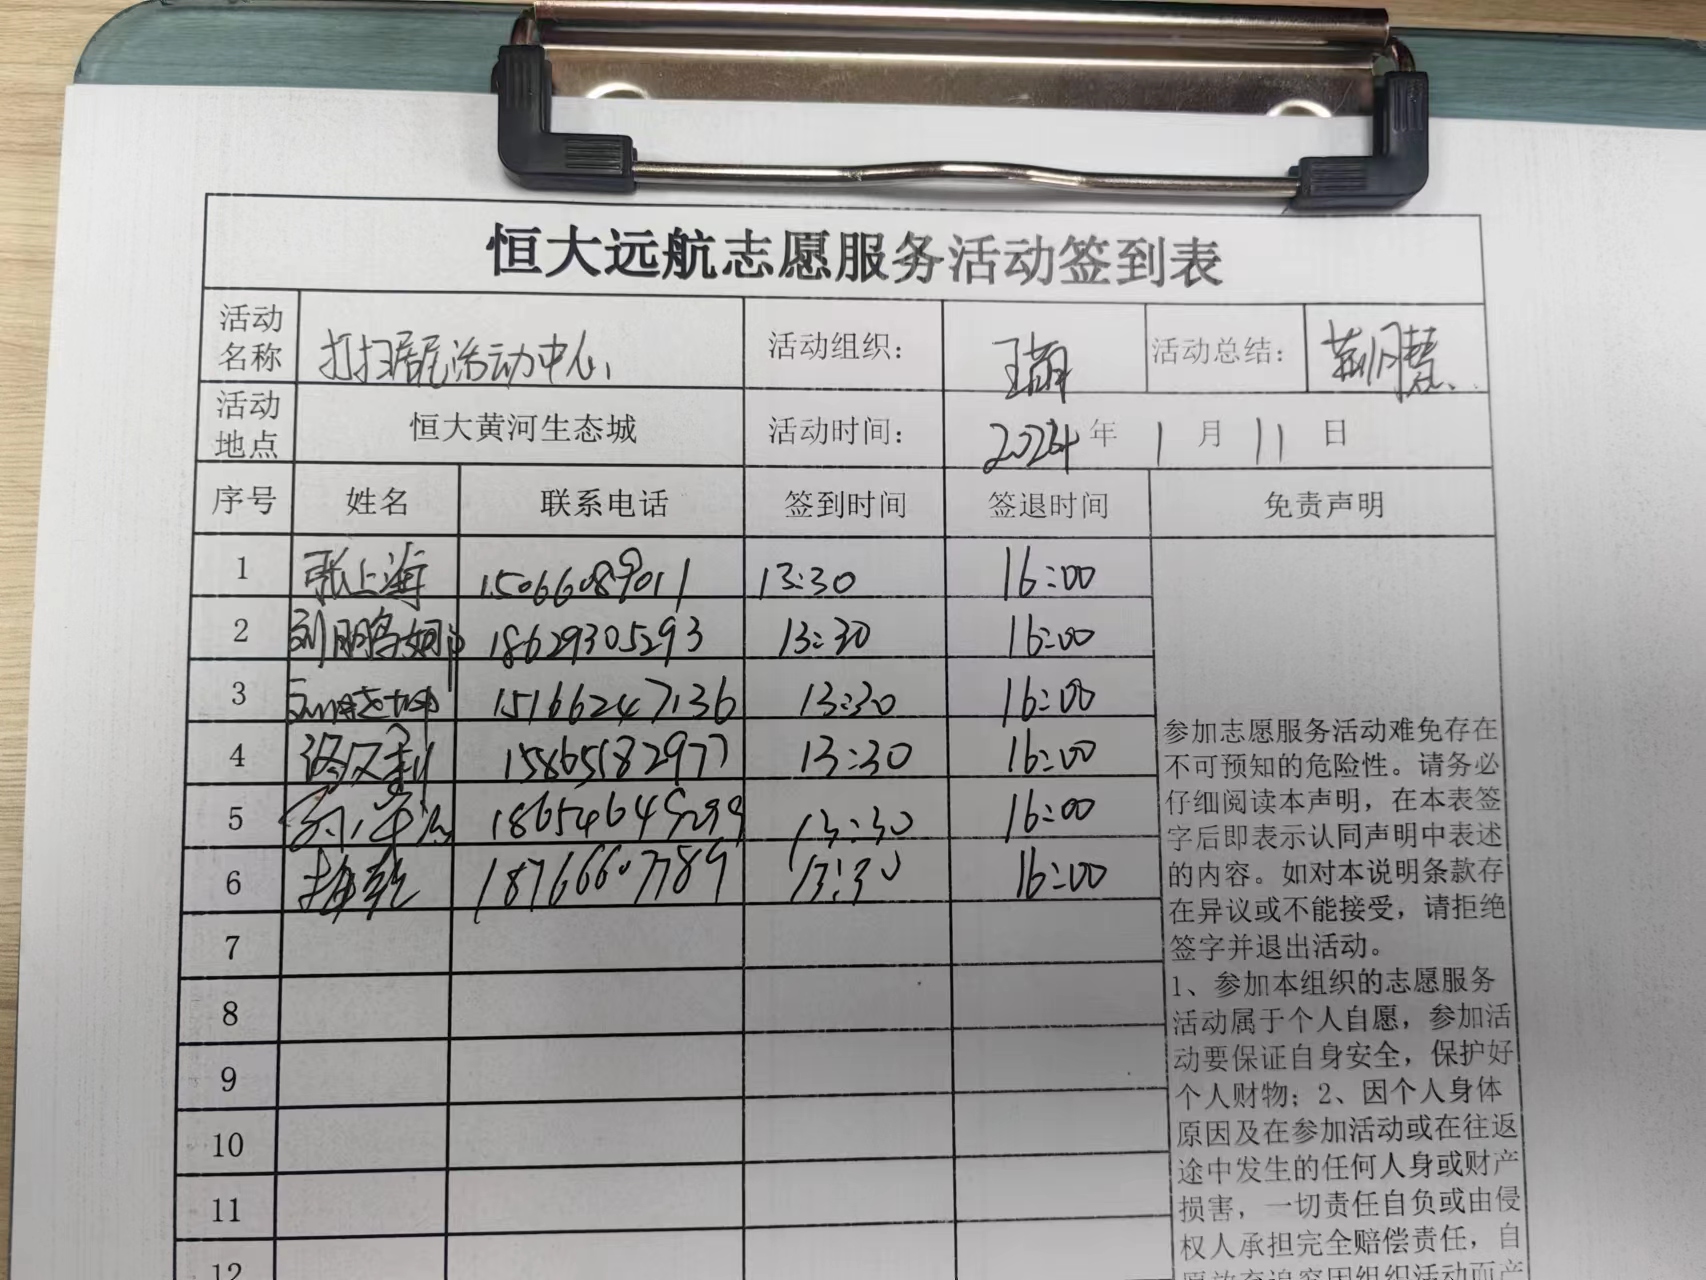 恒大远航志愿服务活动签到表
活动名称 打扫居民活动中心 活动组织： 王萌 活动总结：
活动地点 恒大黄河生态城 活动时间： 2024年 1月 11日
序号 姓名 联系电话 签到时间 签退时间 免责声明
1 张上海 15066089011 13:30 16:00
2 18629305293 13:30 16:00
3 15166247136 13:30 16:00
4 15865182977 13:30 16:00
5 13:30 16:00
6 18766607789 13:30 16:00
7
8
9
10
11
12
参加志愿服务活动难免存在
不可预知的危险性。请务必
仔细阅读本声明，在本表签
字后即表示认同声明中表述
的内容。如对本说明条款存
在异议或不能接受，请拒绝
签字并退出活动。
1、参加本组织的志愿服务
活动属于个人自愿，参加活
动要保证自身安全，保护好
个人财物；2、因个人身体
原因及在参加活动或在往返
途中发生的任何人身或财产
损害，一切责任自负或由侵
权人承担完全赔偿责任，自
愿放弃追究因组织活动而产